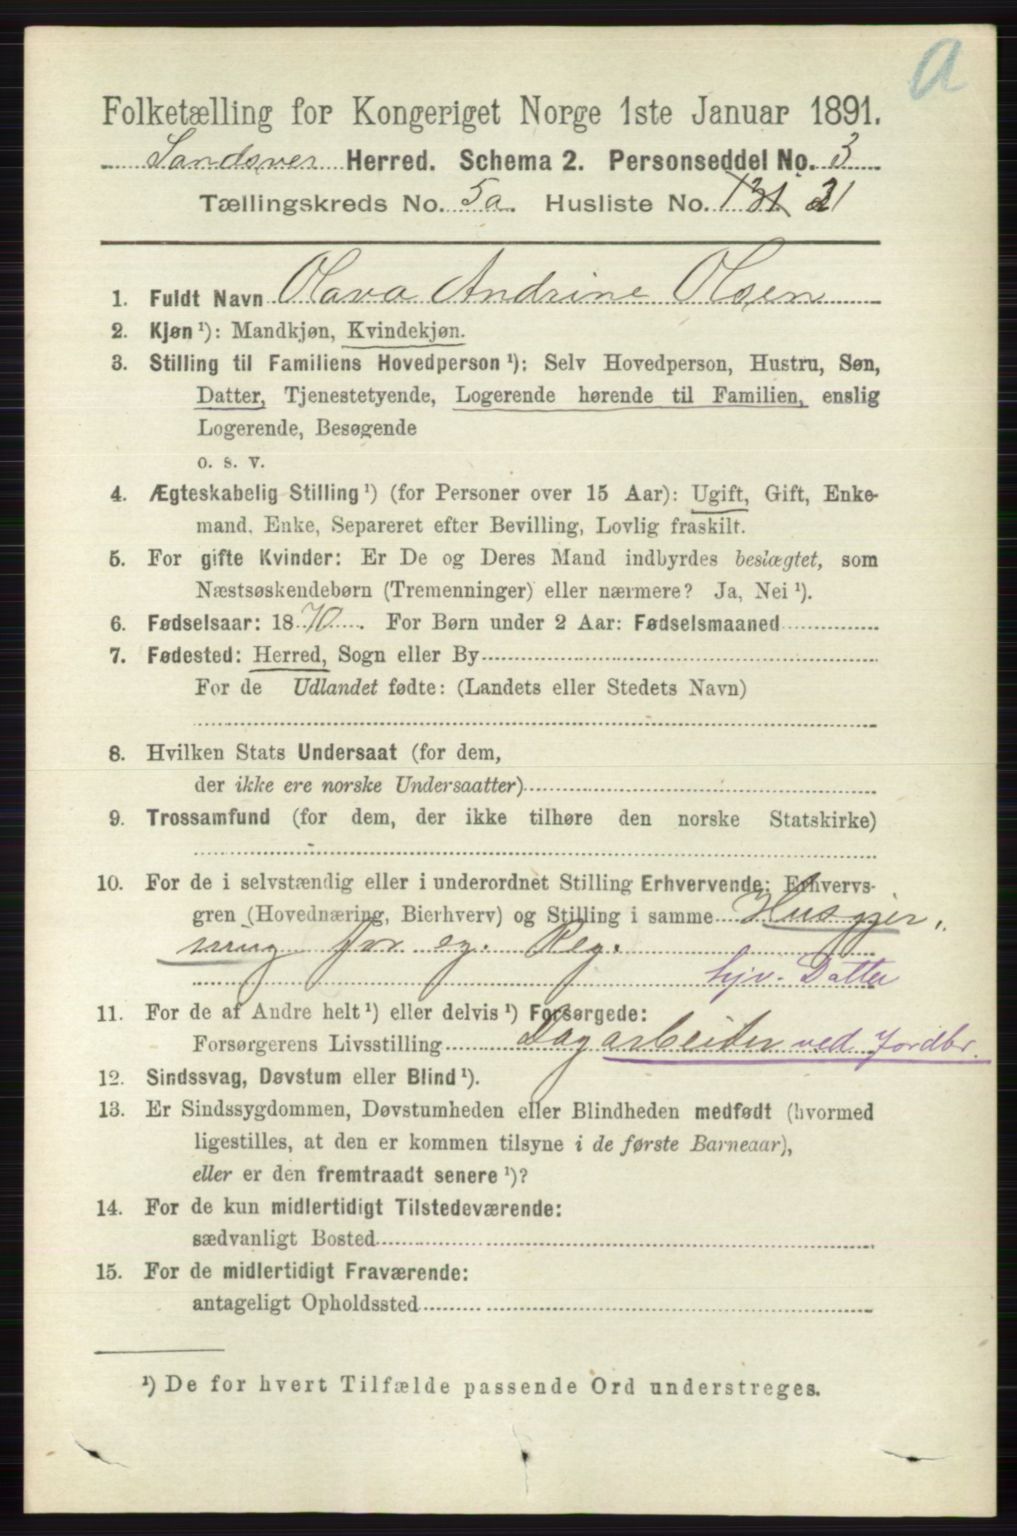 a
Folketælling for Kongeriget Norge 1ste Januar 1891.
Sandsver Herred. Schema 2. Personseddel No. 3
Tællingskreds No. 5a. Husliste No. 131 31
1. Fuldt Navn Olava Andrine Olsen
2. Kjøn ¹): Mandkjøn, Kvindekjøn.
3. Stilling til Familiens Hovedperson ¹): Selv Hovedperson, Hustru, Søn,
Datter, Tjenestetyende, Logerende hørende til Familien, enslig
Logerende, Besøgende
o. s. v.
4. Ægteskabelig Stilling ¹) (for Personer over 15 Aar): Ugift, Gift, Enke-
mand, Enke, Separeret efter Bevilling, Lovlig fraskilt.
5. For gifte Kvinder: Er De og Deres Mand indbyrdes beslægtet, som
Næstsøskendebørn (Tremenninger) eller nærmere? Ja, Nei ¹).
6. Fødselsaar: 1870. For Børn under 2 Aar: Fødselsmaaned
7. Fødested: Herred, Sogn eller By
For de Udlandet fødte: (Landets eller Stedets Navn)
8. Hvilken Stats Undersaat (for dem,
der ikke ere norske Undersaatter)
9. Trossamfund (for dem, der ikke tilhøre den norske Statskirke)
10. For de i selvstændig eller i underordnet Stilling Erhvervende: Erhvervs-
gren (Hovednæring, Bierhverv) og Stilling i samme Husgjer-
ning for eg. Reg.
hjv. Datter
11. For de af Andre helt ¹) eller delvis ¹) Forsørgede:
Forsørgerens Livsstilling Dagarbeider ved Jordbr.
12. Sindssvag, Døvstum eller Blind ¹).
13. Er Sindssygdommen, Døvstumheden eller Blindheden medfødt (hvormed
ligestilles, at den er kommen tilsyne i de første Barneaar),
eller er den fremtraadt senere ¹)?
14. For de kun midlertidigt Tilstedeværende:
sædvanligt Bosted
15. For de midlertidigt Fraværende:
antageligt Opholdssted
¹) De for hvert Tilfælde passende Ord understreges.